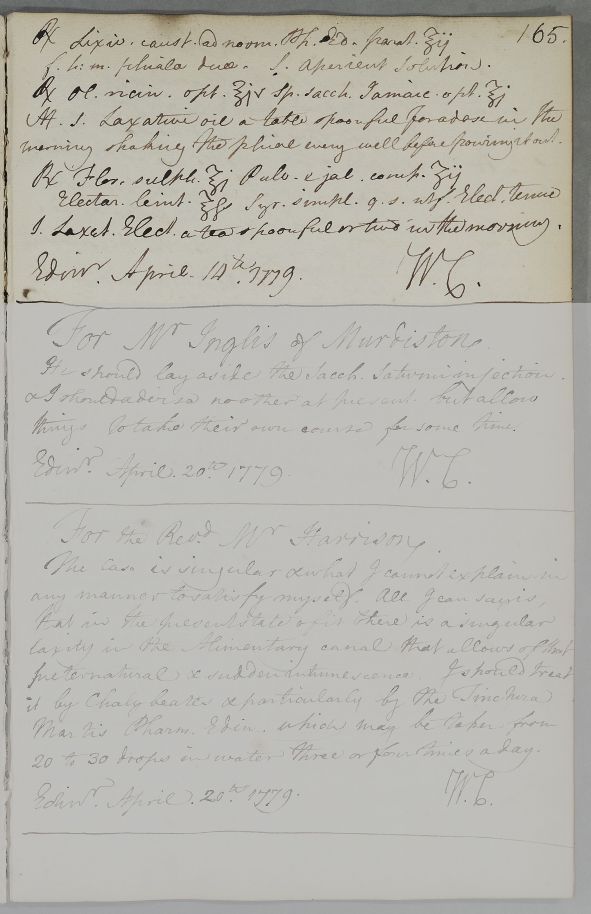 165.
℞ Lixiv. caust. ad noom. Ph. Ed. parat. ℥ij
f. l: m. phiala duo. S. Aperient Solution.
℞ Ol. ricin. opt. ℥js Sp. sacch. Jamaic. opt. ℥j
M. S. Laxative oil a table spoonful for a dose in the
morning shaking the phial every well before pouring it out.
℞ Flor. sulph. ℥j Pulv. e jal. comp. ℥ij
Electar. lenit. ℥ſs Syr. simpl. q. s. utf. Elect. tenue
S. Laxat. Elect. a tea spoonful or two in the morning.
Edinr. April. 14th. 1779. W. C.
For Mr Inglis of Murdiston.
He should lay aside the Sacch. Saturni injection.
& I should advise no other at present but allow
things to take their own course for some time.
Edinr. April. 20th 1779. W. C.
For the Revd. Mr Harrison.
The Case is singular & what I cannot explain in
any manner to satisfy myself. All I can say is,
that in the present state of it there is a singular
laxity in the Alimentary canal that allows of that
preternatural & sudden intumescence. I should treat
it by Chalybeates & particularly by the Tinctura
Martis Pharm. Edin. which may be taken from
20 to 30 drops in water three or four times a day.
Edinr. April. 20th. 1779. W. C.